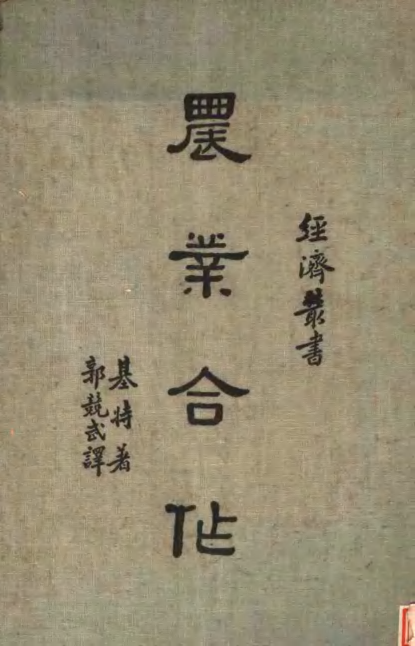 經濟叢書
農業合作
基特著
郭競武譯